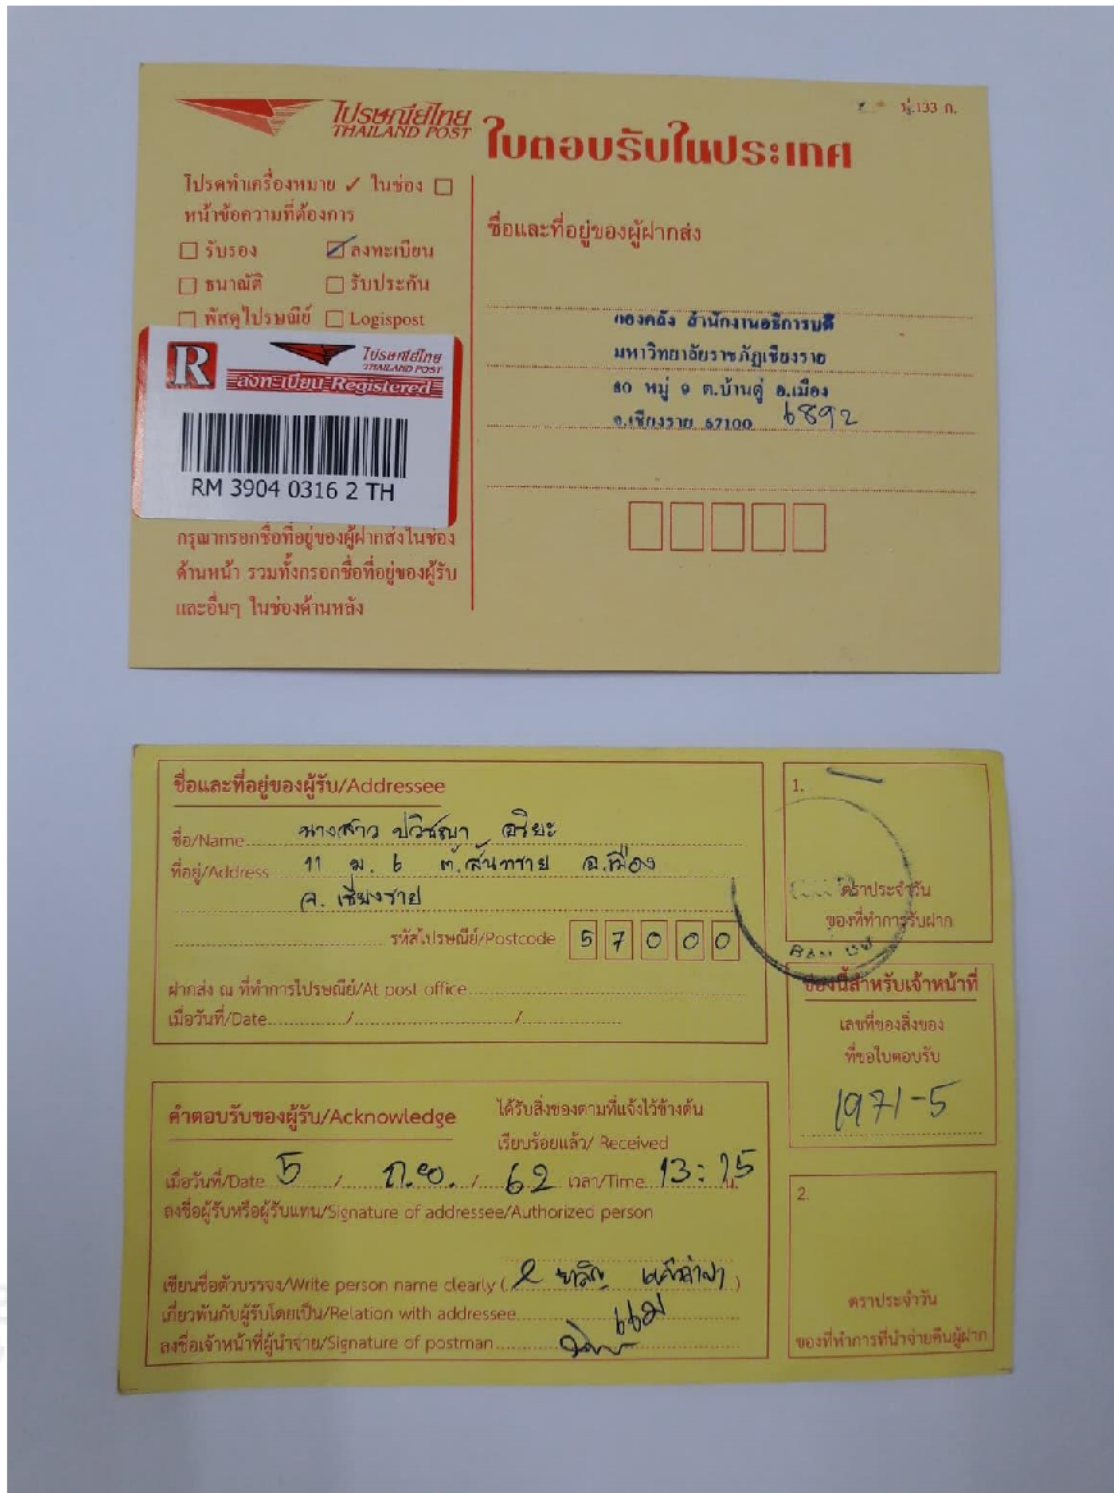 ไปรษณีย์ไทย
THAILAND POST
ป.133 ก.
ใบตอบรับในประเทศ
โปรดทำเครื่องหมาย ✓ ในช่อง □
หน้าข้อความที่ต้องการ
□ รับรอง ☑ ลงทะเบียน
□ ธนาณัติ □ รับประกัน
□ พัสดุไปรษณีย์ □ Logispost
R ไปรษณีย์ไทย
THAILAND POST
ลงทะเบียน Registered
RM 3904 0316 2 TH
กรุณากรอกชื่อที่อยู่ของผู้ฝากส่งในช่อง
ด้านหน้า รวมทั้งกรอกชื่อที่อยู่ของผู้รับ
และอื่นๆ ในช่องด้านหลัง
ชื่อและที่อยู่ของผู้ฝากส่ง
กองคลัง สำนักงานอธิการบดี
มหาวิทยาลัยราชภัฏเชียงราย
80 หมู่ 9 ต.บ้านดู่ อ.เมือง
จ.เชียงราย 57100 6892
ชื่อและที่อยู่ของผู้รับ/Addressee
ชื่อ/Name นางสาว ปวิชญา อริยะ
ที่อยู่/Address 11 ม. 6 ต.สันทราย อ.เมือง
จ. เชียงราย
รหัสไปรษณีย์/Postcode 57000
ฝากส่ง ณ ที่ทำการไปรษณีย์/At post office
เมื่อวันที่/Date / /
1.
ตราประจำวัน
ของที่ทำการรับฝาก
BAN DU
ช่องนี้สำหรับเจ้าหน้าที่
เลขที่ของสิ่งของ
ที่ขอใบตอบรับ
1971-5
คำตอบรับของผู้รับ/Acknowledge
ได้รับสิ่งของตามที่แจ้งไว้ข้างต้น
เรียบร้อยแล้ว/ Received
เมื่อวันที่/Date 5 / ก.ย. / 62 เวลา/Time 13:25 น.
ลงชื่อผู้รับหรือผู้รับแทน/Signature of addressee/Authorized person
เขียนชื่อตัวบรรจง/Write person name clearly ( )
เกี่ยวพันกับผู้รับโดยเป็น/Relation with addressee แม่
ลงชื่อเจ้าหน้าที่ผู้นำจ่าย/Signature of postman
2.
ตราประจำวัน
ของที่ทำการที่นำจ่ายคืนผู้ฝาก